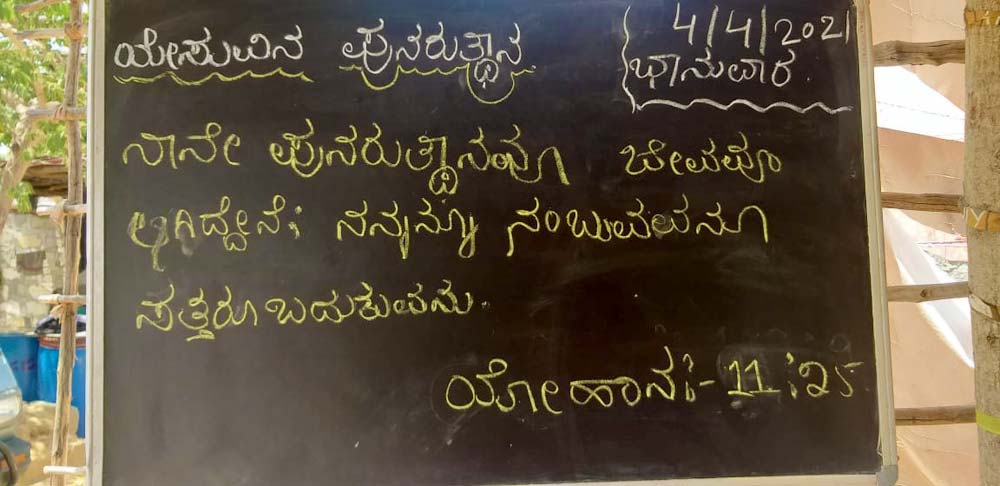 ಯೇಸುವಿನ ಪುನರುತ್ಥಾನ
4/4/2021
ಭಾನುವಾರ
ನಾನೇ ಪುನರುತ್ಥಾನವೂ ಜೀವವೂ
ಆಗಿದ್ದೇನೆ; ನನ್ನನ್ನು ನಂಬುವವನೂ
ಸತ್ತರೂ ಬದುಕುವನು.
ಯೋಹಾನ:- 11:೨೫